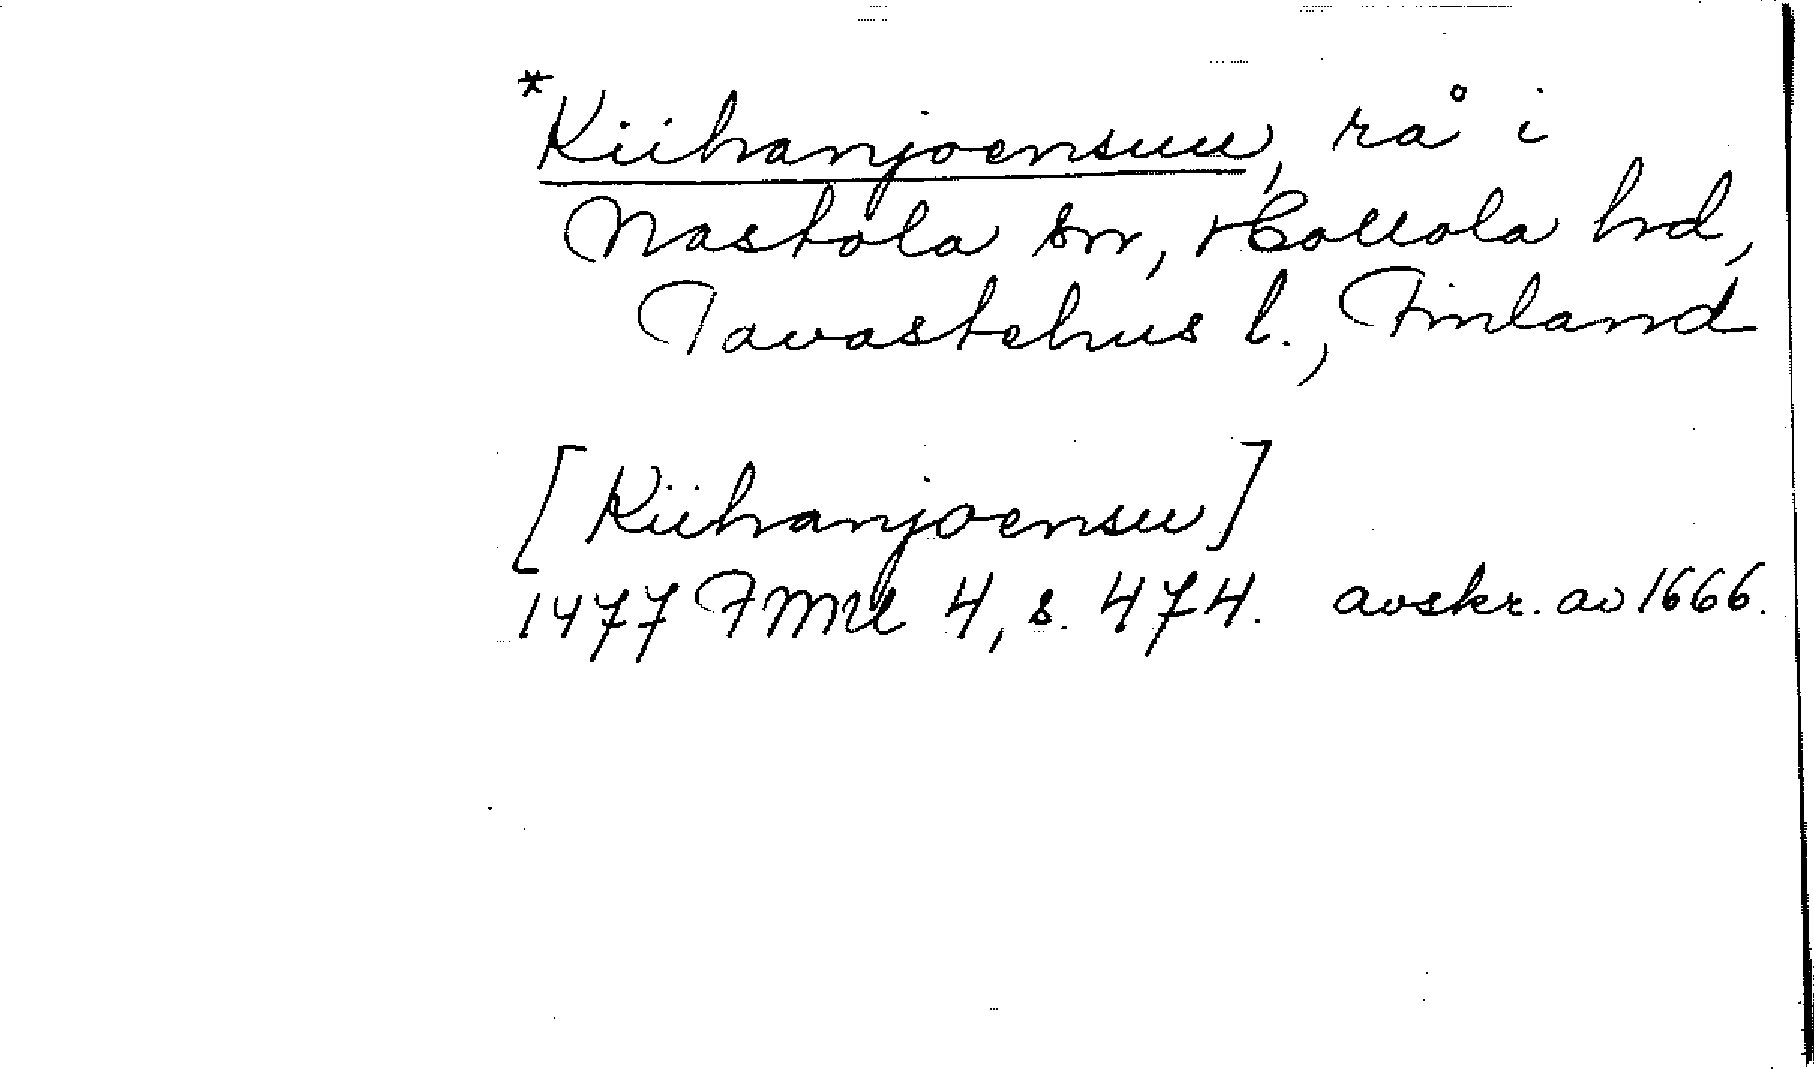 *Kiihanjoensuu, rå i
Nastola sn, Hollola hd,
Tavastehus l., Finland
[Kiihanjoensu]
1477 FMU 4, s. 474. avskr. av 1666.